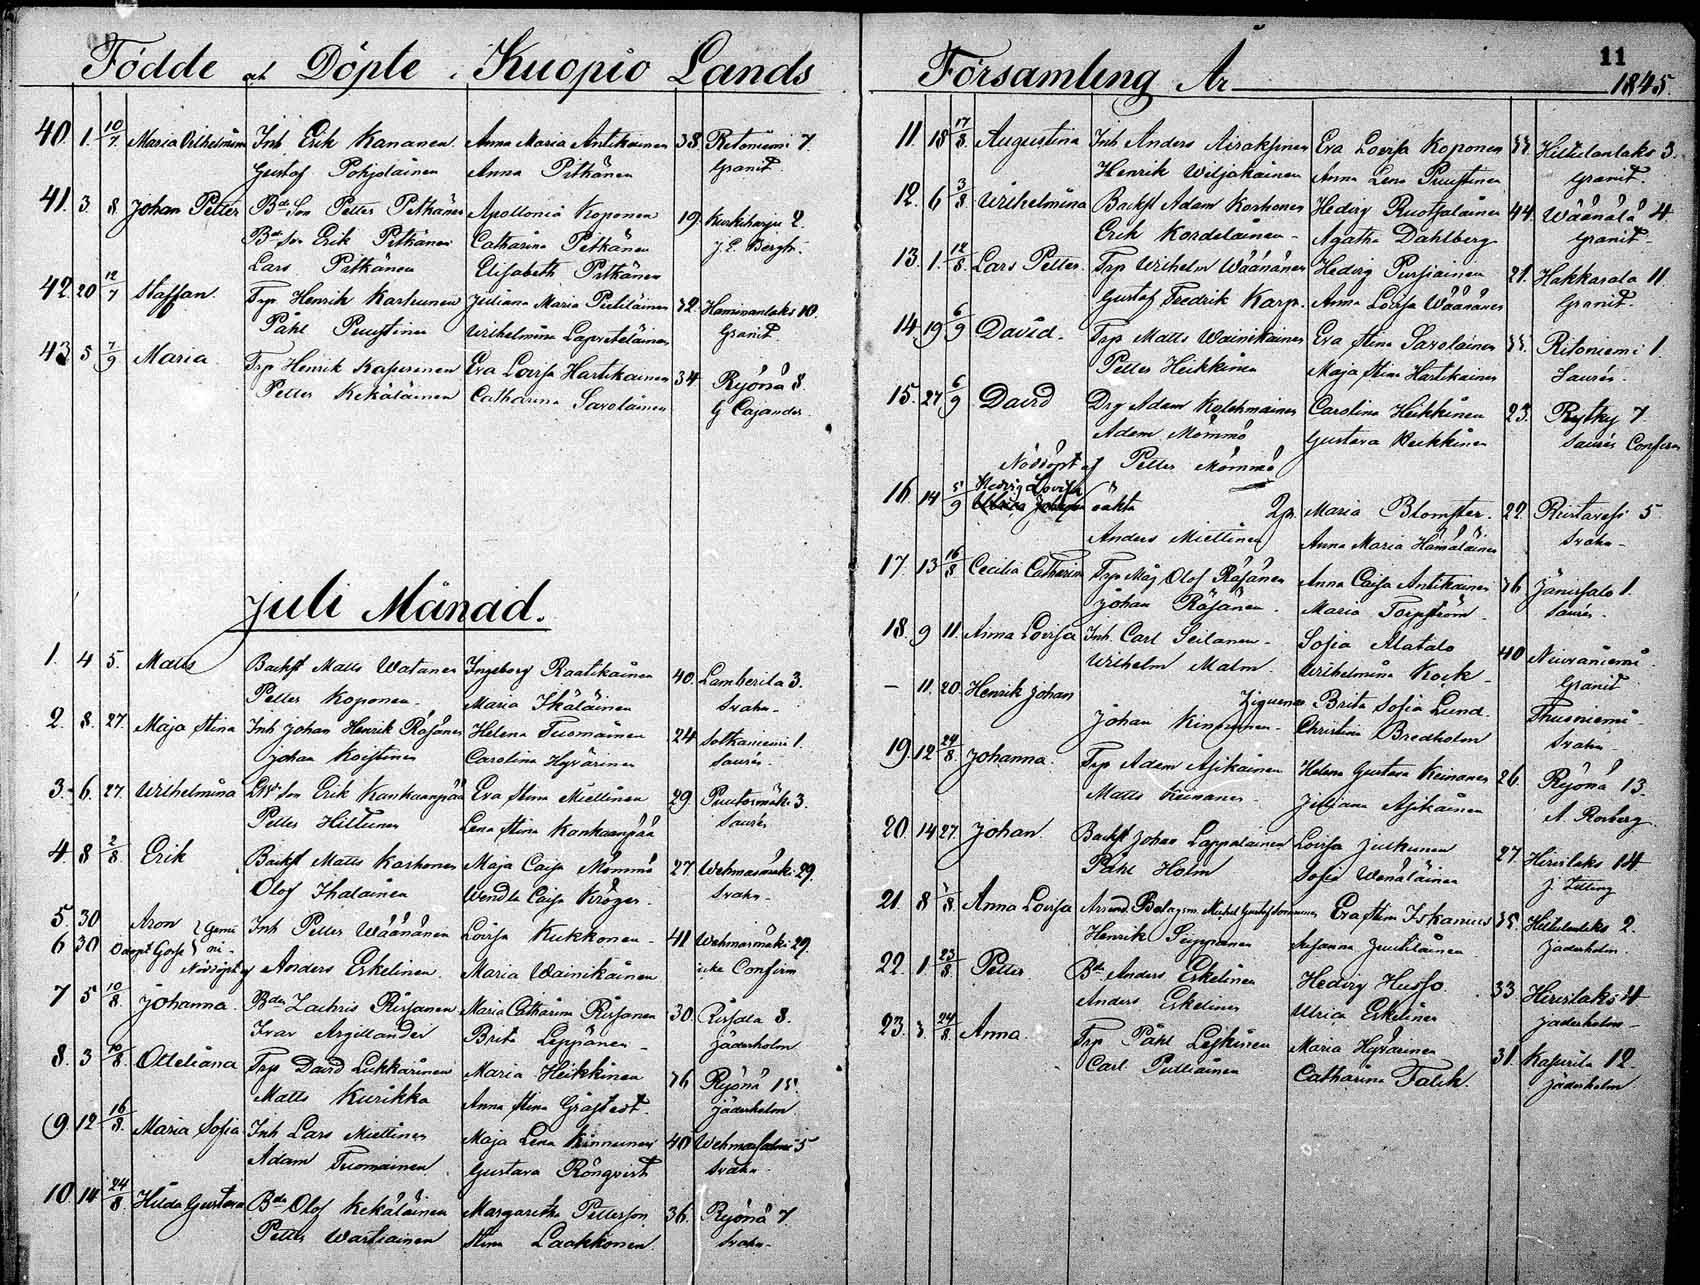 Födde och Döpte i Kuopio Lands
40. 1. 10/7. Maria Vilhelmina Inh Erik Kananen Anna Maria Antikainen 38. Ritoniemi 7.
Gustaf Pohjolainen Anna Pitkänen Granit.
41. 3. 8. Johan Petter Bde Son Petter Pitkänen Apollonia Koponen 19. Kurkiharju 2.
Bde Son Erik Pitkänen Catharina Pitkänen J. E. Bergh.
Lars Pitkänen Elisabeth Pitkänen
42. 20 12/7 Staffan. Trp Henrik Karhunen Juliana Maria Putilainen 32. Haminanlaks 10.
Påhl Puustinen Wilhelmina Lapveteläinen Granit.
43 5 7/9 Maria Trp Henrik Kasurinen Eva Lovisa Hartikainen 34 Ryönä 8.
Petter Kekäläinen Catharina Savolainen G Cajander
Juli Månad.
1. 4 5. Matts Backst Matts Watanen Ingeborg Raatikainen 40. Lamberila 3.
Petter Koponen Maria Ikäläinen Svahn
2. 8. 27. Maja Stina Inh Johan Henrik Räsänen Helena Tuomainen 24 Sotkaniemi 1.
Johan Koistinen Carolina Hyvärinen Saurén
3. 6. 27. Wilhelmina Son Erik Kankaanpää Eva Stina Miettinen 29 Puutosmäki 3.
Petter Hiltunen Lena Stina Kankaanpää Saurén
4. 8 2/8 Erik Backst Matts Karhonen Maja Caisa Mömmö 27 Wehmasmäki 29.
Olof Ihalainen Wendla Caisa Kröger. Svahn
5. 30 Aron Inh Petter Wäänänen Lovisa Kukkonen 41 Wehmasmäki 29.
6 30 Odöpt Gosse Nöddöpt af Anders Eskelinen Maria Wainikainen icke Confirm
7 5 10/8 Johanna Bde Zachris Rissanen Maria Catharina Rissanen 30. Rissala 8.
Ivar Argillander Brita Leppänen Jäderholm
8. 3 10/8 Otteliana Trp David Lukkarinen Maria Heikkinen 36 Ryönä 15.
Matts Kurikka Anna Stina Gråstedt Jäderholm
9. 12 16/8. Maria Sofia Inh Lars Miettinen Maja Lena Kinnunen 40 Wehmasalmi 5
Adam Tuomainen Gustava Rönqvist Svahn
10. 14 24/8 Hilda Gustava Bde Olof Kekäläinen Margaretha Petterson 36. Ryönä 7.
Petter Wartiainen Stina Laakkonen Svahn
Församling År 1845.
11
11. 18 17/8 Augustina Inh Anders Airaksinen Eva Lovisa Koponen 33. Hiltulanlaks 3.
Henrik Wiljakainen Anna Lena Puustinen Granit.
12. 6 3/8 Wilhelmina Backst Adam Korhonen Hedvig Ruotsalainen 44. Wäänälä 4
Erik Kordelainen Agatha Dahlberg Granit
13. 1. 12/8. Lars Petter. Trp Wilhelm Wäänänen Hedvig Pursiainen 21. Hakkarala 11
Gustaf Fredrik Karp. Anna Lovisa Wäänänen Granit.
14. 19 6/9 David. Trp Matts Wainikainen Eva Stina Savolainen 33. Ritoniemi 1.
Petter Heikkinen Maja Stina Hartikainen Saurén
15. 27 6/9 David Drg Adam Kolehmainen Carolina Heikkinen 23. Rytky 7
Adam Mömmö Gustava Heikkinen Saurén Confirm
Nöddöpt af Petter Mömmö
16 14 5/9 Hedvig Lovisa oäkta Maria Blomster. 22. Ristavesi 5
Anders Miettinen Anna Maria Hämäläinen Svahn
17. 13 16/8 Cecilia Catharina Trp Måg Olof Räsänen Anna Caisa Antikainen 36 Jänissalo 1.
Johan Räsänen. Maria Torpström Saurén
18. 9 11. Anna Lovisa Inh. Carl Seilanen Sofia Alatalo 40 Neuvaniemi
Wilhelm Malm Wilhelmina Kock Granit
– 11. 20. Henrik Johan Ziguenar Brita Sofia Lund. Thusniemi
Johan Kinnunen Christina Bredholm Svahn
19. 12 24/8. Johanna. Trp Adam Asikainen Helena Gustava Keinanen 26. Ryönä 13.
Matts Keinanen Juliana Asikainen A. Rosberg
20. 14 27. Johan. Backst Johan Lappalainen Lovisa Julkunen 27. Hirvilaks 14
Påhl Holm Sofia Wänäläinen J. Telling
21. 8 8 Anna Lovisa Eva Stina Iskanius 35. Hiltulanlaks 2.
Henrik Seppänen Susanna Juutilainen Jäderholm
22. 1. 23/8. Petter Bde Anders Eskelinen Hedvig Husso. 33. Hirvilaks 4
Anders Eskelinen Ulrica Eskelinen Jäderholm
23. 3 24/8 Anna. Trp Påhl Leskinen Maria Hyvärinen 31. Kasurila 12.
Carl Pulliainen Catharina Falck. Jäderholm